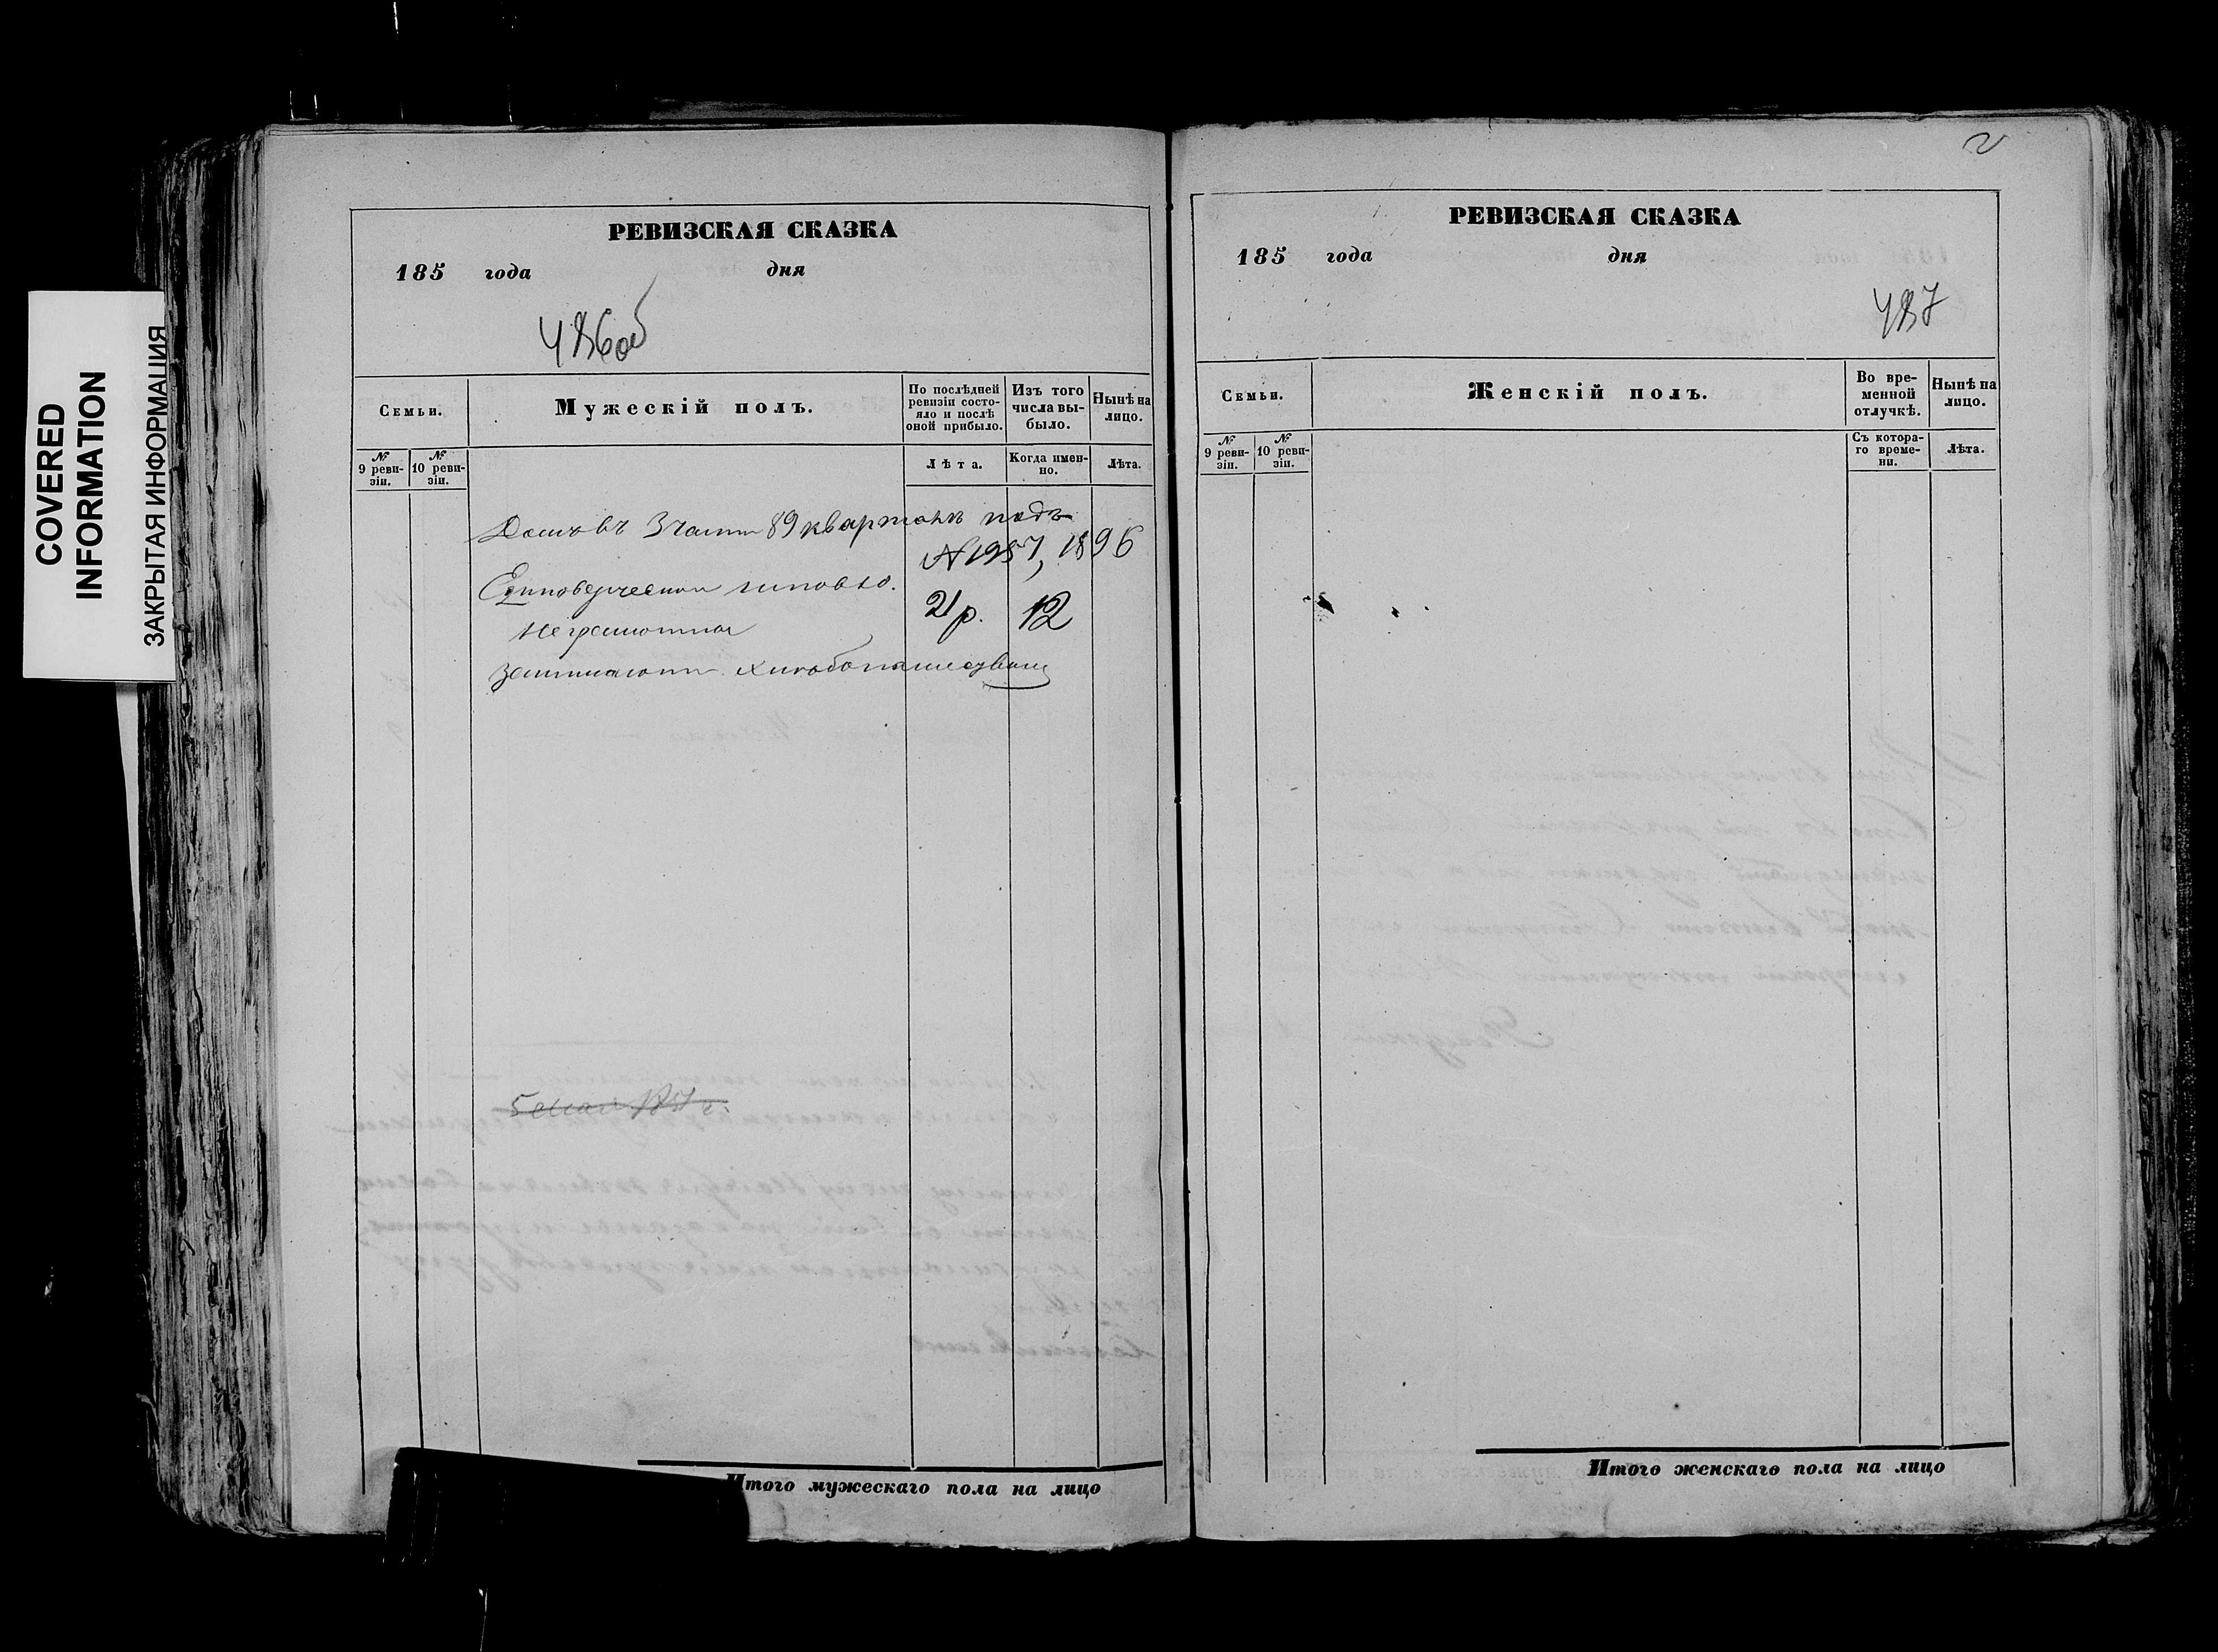 COVERED
INFORMATION
ЗАКРЫТАЯ ИНФОРМАЦИЯ
РЕВИЗСКАЯ СКАЗКА
185 года дня
486об
Семьи.
Мужескій полъ.
По послѣдней ревизіи состо-
яло и послѣ
оной прибыло.
Изъ того
числа вы-
было.
Нынѣ на
лицо.
№
9 реви-
зіи.
№
10 реви-
зіи.
Лѣта.
Когда имен-
но.
Лѣта.
Домъ въ 3 части 89 кварталѣ подъ
№ 1957, 1896
21 р. 12
Неграмотны
занимаются хлѣбопашествомъ
Итого мужескаго пола на лицо
2
РЕВИЗСКАЯ СКАЗКА
185 года дня
487
Семьи.
Женскій полъ.
Во вре-
менной
отлучкѣ.
Нынѣ на
лицо.
№
9 реви-
зіи.
№
10 реви-
зіи.
Съ котора-
го време-
ни.
Лѣта.
Итого женскаго пола на лицо